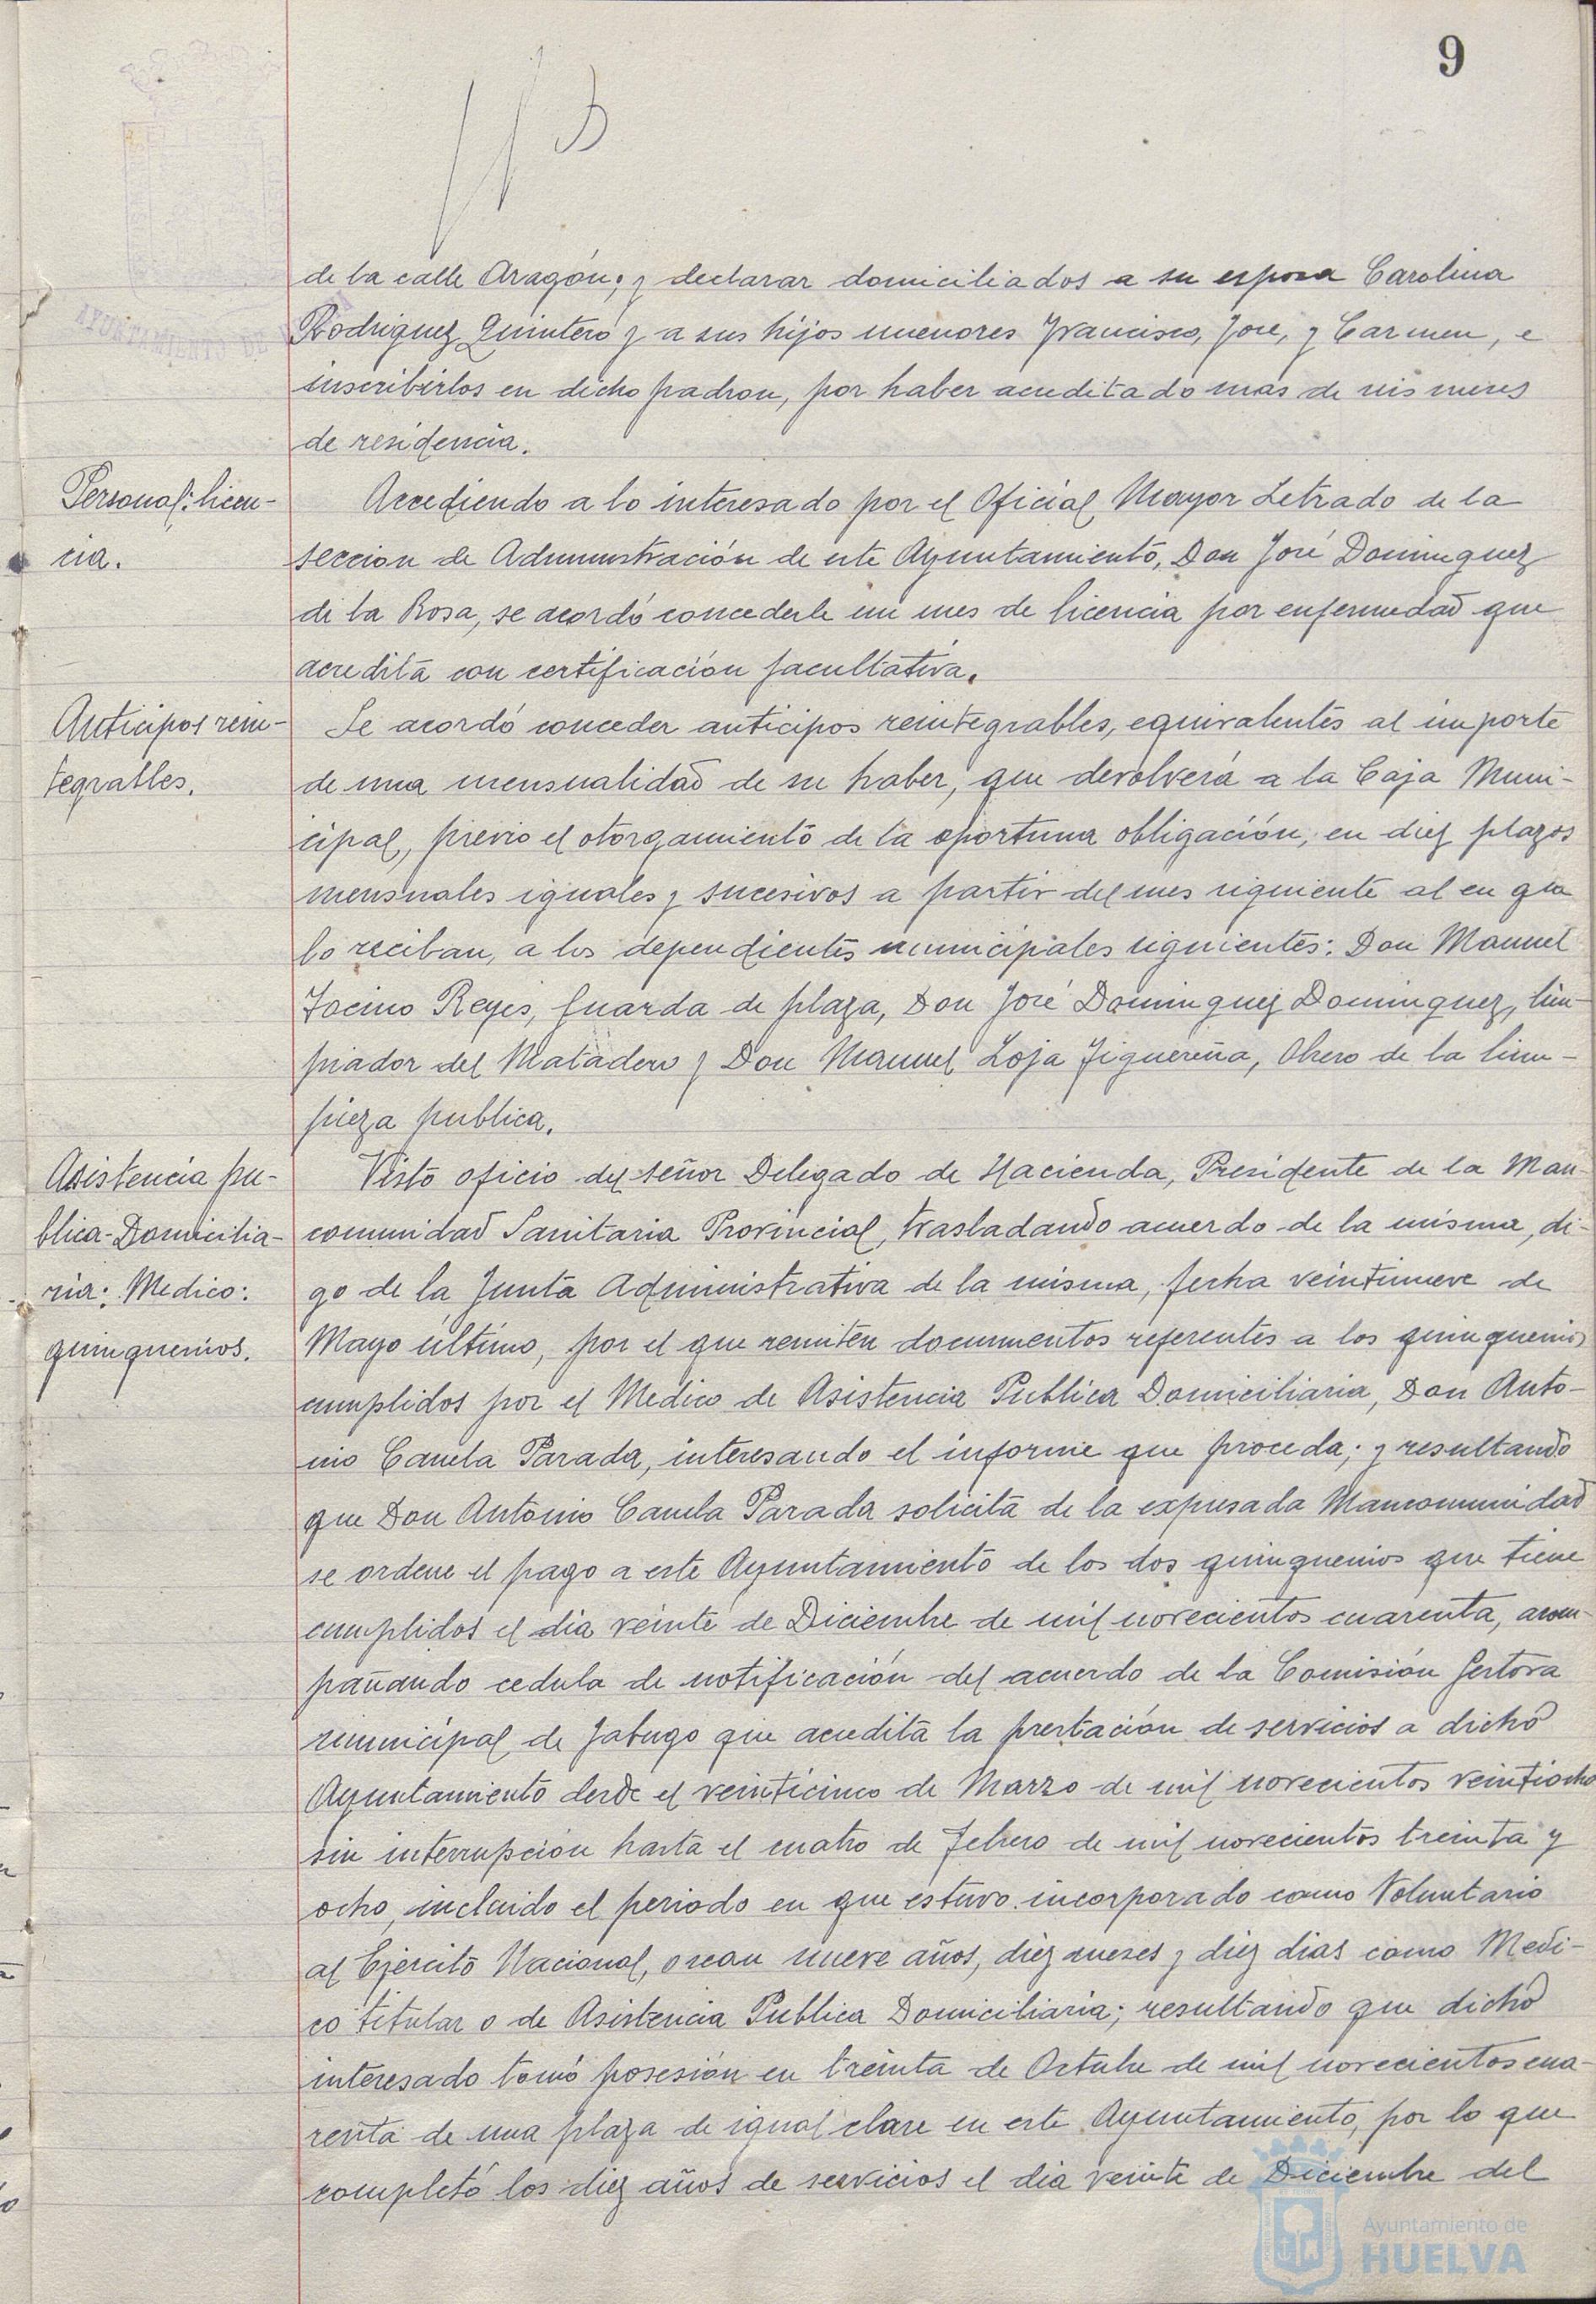 9
de la calle Aragón; y declarar domiciliados a su esposa Carolina
Rodriguez Quintero y a sus hijos menores Francisco, Jose, y Carmen, e
inscribirlos en dicho padron, por haber acreditado mas de seis meses
de residencia.
Personal: licen-
cia.
Accediendo a lo interesado por el Oficial Mayor Letrado de la
seccion de Administración de este Ayuntamiento, Don José Dominguez
de la Rosa, se acordó concederle un mes de licencia por enfermedad que
acredita con certificación facultativa.
Anticipos rein-
tegrables.
Se acordó conceder anticipos reintegrables, equivalentes al importe
de una mensualidad de su haber, que devolverá a la Caja Muni-
cipal, previo el otorgamiento de la oportuna obligación, en diez plazos
mensuales iguales y sucesivos a partir del mes siguiente al en que
lo reciban, a los dependientes municipales siguientes: Don Manuel
Reyes, Guarda de plaza, Don José Dominguez Dominguez, lim-
piador del Matadero y Don Manuel Loja Figuereña, Obrero de la lim-
pieza publica.
Asistencia pu-
blica-Domicilia-
ria: Medico:
quinquenios.
Visto oficio del señor Delegado de Hacienda, Presidente de la Man-
comunidad Sanitaria Provincial, trasladando acuerdo de la misma, di-
go de la Junta Administrativa de la misma, fecha veintinueve de
Mayo último, por el que remiten documentos referentes a los quinquenios
cumplidos por el Medico de Asistencia Publica Domiciliaria, Don Anto-
nio Canela Parada, interesando el informe que proceda; y resultando
que Don Antonio Canela Parada solicita de la expresada Mancomunidad
se ordene el pago a este Ayuntamiento de los dos quinquenios que tiene
cumplidos el dia veinte de Diciembre de mil novecientos cuarenta, acom-
pañando cedula de notificación del acuerdo de la Comisión Gestora
municipal de Jabugo que acredita la prestación de servicios a dicho
Ayuntamiento desde el veinticinco de Marzo de mil novecientos veintiocho
sin interrupción hasta el cuatro de Febrero de mil novecientos treinta y
ocho, incluido el periodo en que estuvo incorporado como Voluntario
al Ejercito Nacional, o sean nueve años, diez meses y diez dias como Medi-
co titular o de Asistencia Publica Domiciliaria; resultando que dicho
interesado tomó posesión en treinta de Octubre de mil novecientos cua-
renta de una plaza de igual clase en este Ayuntamiento, por lo que
completó los diez años de servicios el dia veinte de Diciembre del
Ayuntamiento de
HUELVA